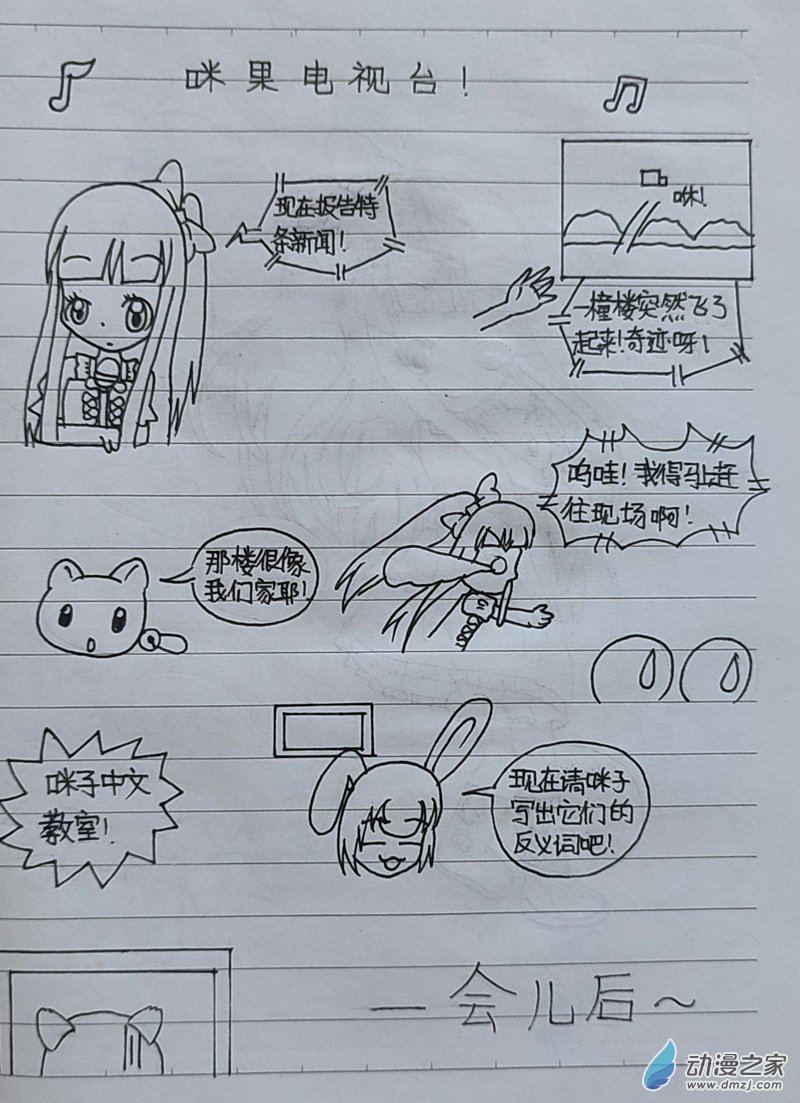 咪果电视台！
现在报告特
条新闻！
咻！
一撞楼突然飞了
起来！奇迹呀！
呜哇！我得马上赶
住现场啊！
那楼很像
我们家耶！
咪子中文
教室！
现在请咪子
写出它们的
反义词吧！
一会儿后～
动漫之家
www.dmzj.com